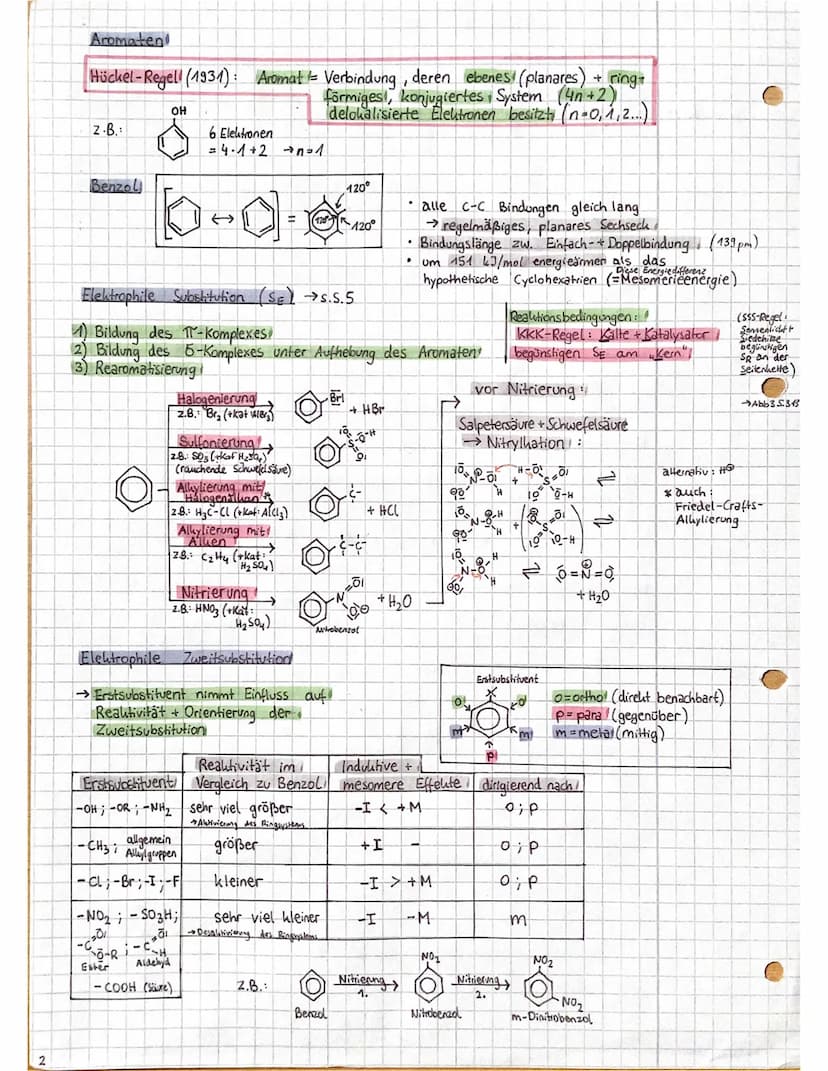 Aromaten
Hückel-Regel (1931): Aromat = Verbindung, deren ebenes (planares) + ring-
förmiges, konjugiertes System (4n+2)
delokalisierte Elektronen besitzt (n=0,1,2...)
OH
z.B.: 6 Elektronen
= 4·1+2 → n=1
Benzol
120°
120°
120°
[ ↔ ] =
• alle C-C Bindungen gleich lang
→ regelmäßiges, planares Sechseck
• Bindungslänge zw. Einfach- + Doppelbindung (139pm)
• um 151 kJ/mol energieärmer als das
hypothetische Cyclohexatrien (=Mesomerieenergie)
Diese Energiedifferenz
Elektrophile Substitution (SE) → s.S.5
1) Bildung des π-Komplexes
2) Bildung des σ-Komplexes unter Aufhebung des Aromaten
3) Rearomatisierung
Reaktionsbedingungen:
KKK-Regel: Kälte + Katalysator
begünstigen SE am "Kern"
(SSS-Regel:
Sonnenlicht +
Siedehitze
begünstigen
SR an der
Seitenkette)
Halogenierung
z.B.: Br₂ (+Kat AlBr₃)
Br
+ HBr
Sulfonierung
z.B.: SO₃ (+Kat H₂SO₄)
(rauchende Schwefelsäure)
Alkylierung mit
Halogenalkan *
z.B.: H₃C-Cl (+Kat: AlCl₃)
+ HCl
Alkylierung mit
Alken
z.B.: C₂H₄ (+Kat:
H₂SO₄)
Nitrierung
z.B.: HNO₃ (+Kat:
H₂SO₄)
Nitrobenzol
+ H₂O
vor Nitrierung:
Salpetersäure + Schwefelsäure
→ Nitrylkation:
O=N=O
+ H₂O
alternativ: H⊕
* auch:
Friedel-Crafts-
Alkylierung
Elektrophile Zweitsubstitution
→ Erstsubstituent nimmt Einfluss auf
Reaktivität + Orientierung der
Zweitsubstitution
Erstsubstituent
X
o
o
m
m
p
o=ortho (direkt benachbart)
p=para (gegenüber)
m=meta (mittig)
Erstsubstituent
Reaktivität im
Vergleich zu Benzol
Induktive +
mesomere Effekte
dirigierend nach
-OH; -OR; -NH₂
sehr viel größer
→ Aktivierung des Ringsystems
-I < +M
o; p
-CH₃; allgemein
Alkylgruppen
größer
+I -
o; p
-Cl; -Br; -I; -F
kleiner
-I > +M
o; p
-NO₂; -SO₃H;
sehr viel kleiner
→ Desaktivierung des Ringsystems
-I -M
m
Ester
Aldehyd
-COOH (Säure)
z.B.:
Benzol
Nitrierung
1.
NO₂
Nitrobenzol
Nitrierung
2.
NO₂
NO₂
m-Dinitrobenzol
2